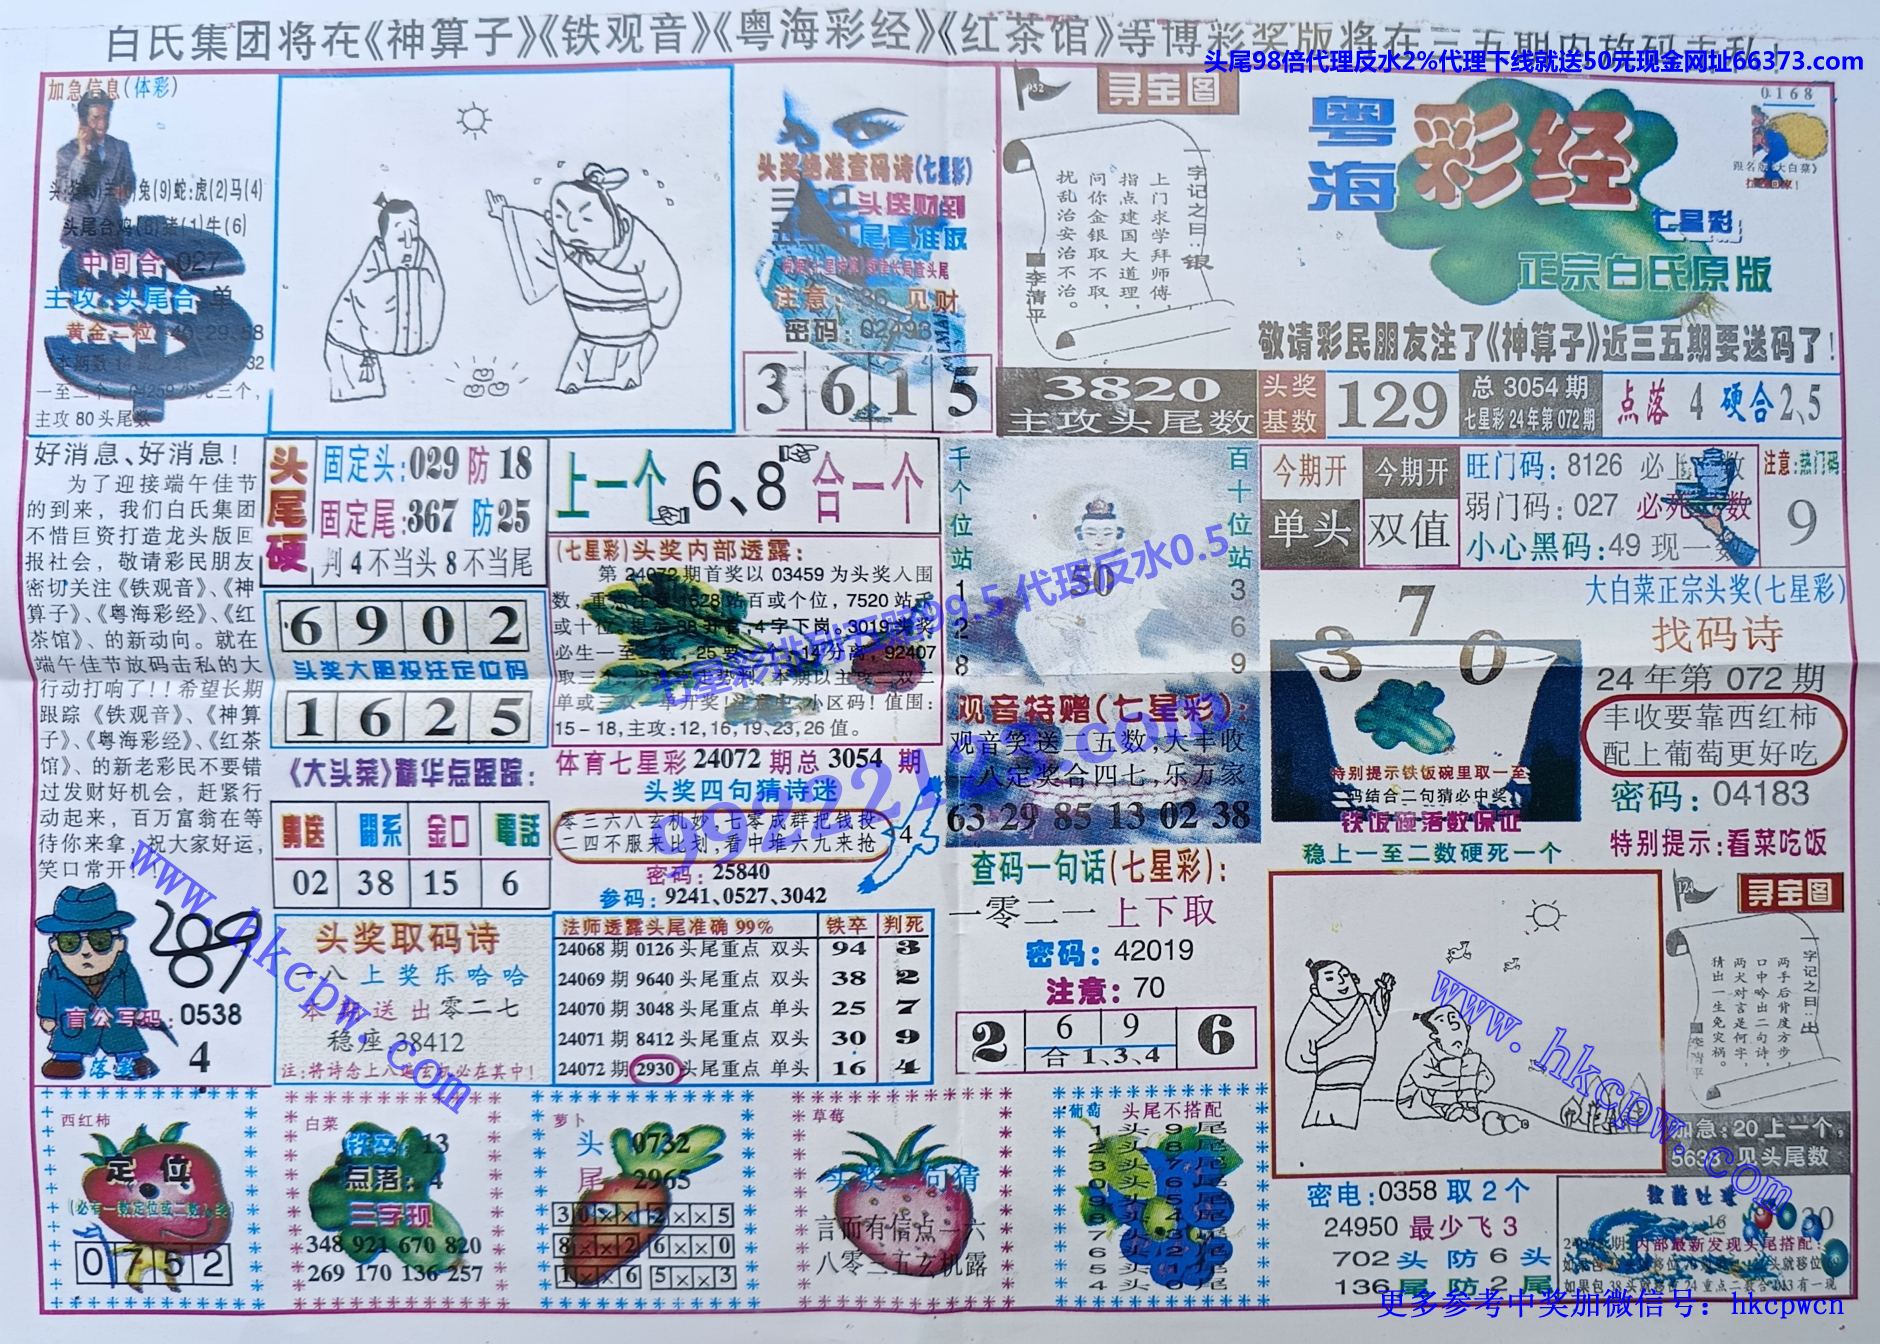 白氏集团将在《神算子》《铁观音》《粤海彩经》《红茶馆》等博彩奖版将在三五期内放码击私！
头尾98倍代理反水2%代理下线就送50元现金网址66373.com
加急信息(体彩)
兔(9)蛇:虎(2)马(4)
头尾合鸡(8)猪(1)牛(6)
中间合 027
主攻:头尾合 单
黄金二粒:40.29.58
主攻80头尾数
头奖绝准查码诗(七星彩)
头送财到
尾看准取
注意: 36 见财
密码: 02498
3 6 1 5
932
寻宝图
一字记之曰:银
上门求学拜师傅，
指点建国大道理，
问你金银取不取，
扰乱治安治不治。
李清平
3820
主攻头尾数
粤海
彩经
七星彩
正宗白氏原版
0168
敬请彩民朋友注了《神算子》近三五期要送码了！
头奖基数
129
总3054期
七星彩24年第072期
点落 4 硬合2、5
好消息、好消息！
为了迎接端午佳节
的到来，我们白氏集团
不惜巨资打造龙头版回
报社会，敬请彩民朋友
密切关注《铁观音》、《神
算子》、《粤海彩经》、《红
茶馆》、的新动向。就在
端午佳节放码击私的大
行动打响了！！希望长期
跟踪《铁观音》、《神算
子》、《粤海彩经》、《红茶
馆》、的新老彩民不要错
过发财好机会，赶紧行
动起来，百万富翁在等
待你来拿，祝大家好运，
笑口常开！
头尾硬
固定头:029 防18
固定尾:367 防25
判4不当头8不当尾
6 9 0 2
头奖大胆投注定位码
1 6 2 5
《大头菜》精华点跟踪:
男送 關系 金口 電話
02 38 15 6
上一个 6、8 合一个
(七星彩)头奖内部透露:
第24072期首奖以03459为头奖入围
15-18,主攻:12,16,19,23,26值。
体育七星彩24072期总3054期
头奖四句猜诗迷
零三六八玄机妙,七零成群把钱投
二四不服来比划,看中堆六九来抢
密码: 25840
参码: 9241、0527、3042
4
千个位站
1
2
8
50
百十位站
3
6
9
观音特赠(七星彩):
观音笑送二五数,大丰收
一八定奖合四七,乐万家
63 29 85 13 02 38
今期开
单头
今期开
双值
旺门码: 8126
弱门码: 027
小心黑码:49现一数
注意:热门码
9
3 7 0
特别提示铁饭碗里取一至
二码结合二句猜必中奖
铁饭碗落数保证
稳上一至二数硬死一个
大白菜正宗头奖(七星彩)
找码诗
24年第072期
丰收要靠西红柿
配上葡萄更好吃
密码: 04183
特别提示:看菜吃饭
289
盲公写码: 0538
4
头奖取码诗
一八上奖乐哈哈
本期送出零二七
稳座 38412
注:将诗念上八遍玄机必在其中!
法师透露头尾准确99% 铁卒 判死
24068期 0126 头尾重点 双头 94 3
24069期 9640 头尾重点 双头 38 2
24070期 3048 头尾重点 单头 25 7
24071期 8412 头尾重点 双头 30 9
24072期 2930 头尾重点 单头 16 4
查码一句话(七星彩):
一零二一上下取
密码: 42019
注意: 70
2 6 9 6
合1、3、4
124
寻宝图
一字记之曰:出
两手后背度方步，
口中吟出二句诗，
两犬对言是何字，
猜出一生免灾祸。
李清平
加急:20上一个,
5638 见头尾数
西红柿
定位
0 7 5 2
白菜
铁卒: 13
点落: 4
三字现
348 921 670 820
269 170 136 257
萝卜
头 0732
尾 2965
3 0 × × 2 × × 5
8 × × 2 6 × × 0
1 × × 6 5 × × 3
草莓
头奖一句猜
言而有信点一六
八零三五玄机露
葡萄
头尾不搭配
1头9尾
2头8尾
3头7尾
0头6尾
9头5尾
8头4尾
7头3尾
6头2尾
5头1尾
4头0尾
密电:0358取2个
24950最少飞3
702头防6头
136尾防2尾
内部最新发现头尾搭配:
七星彩排列五赔99.5 代理反水0.5
9922212.com
www.hkcpw.com
www.hkcpw.com
更多参考中奖加微信号：hkcpwcn